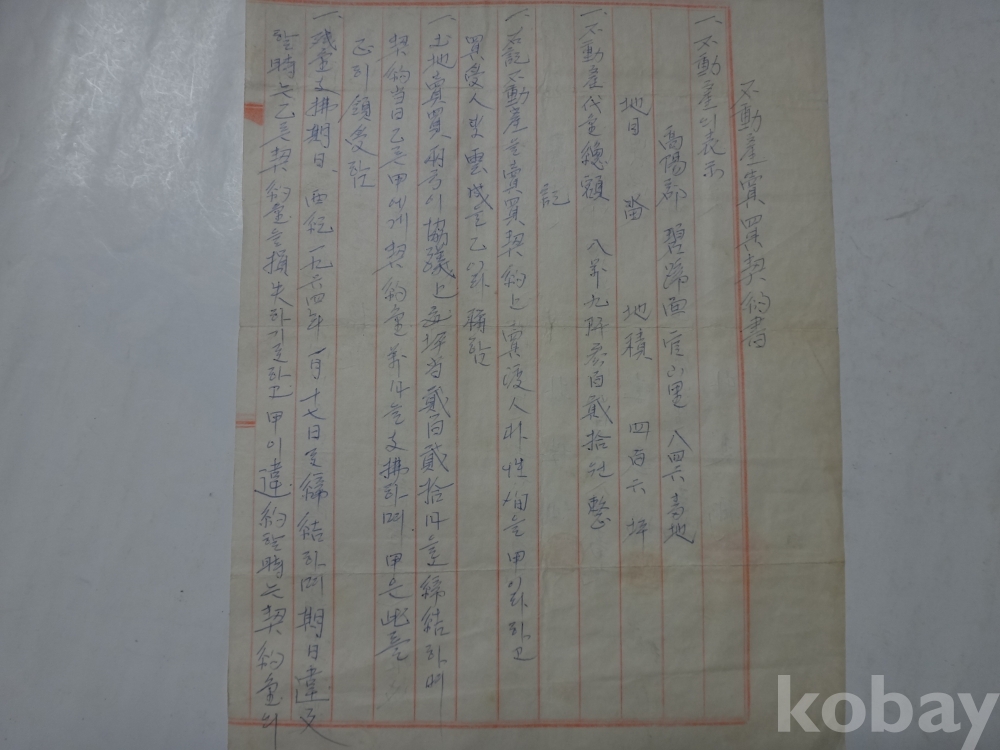 不動産賣買契約書
一. 不動産의表示
高陽郡 碧蹄面 官山里 八四六番地
地目 畓 地積 四百六坪
一. 不動産代金總額 八萬九阡參百貳拾원整
記
一. 右記不動産을賣買契約上賣渡人 朴性 을甲이라하고
買受人 雲成을乙이라稱함
一. 土地賣買兩子이協議上 坪当貳百貳拾 을締結하며
契約当日乙은甲에게契約金 을支拂하며 甲은此를
正히領受함
一. 残金支拂期日. 西紀一九六四年一月十七日로締結하며期日違反
할時는乙은契約金을損失하기로하고甲이違約할時는契約金의
kobay